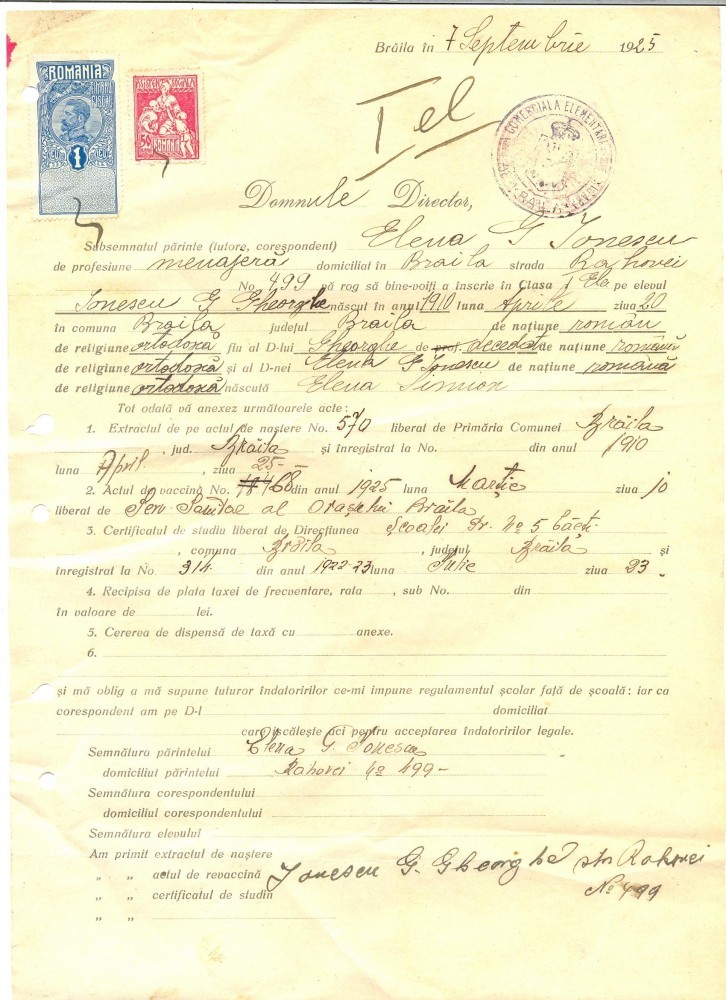 Brăila în 7 Septembrie 1925
ROMANIA
TIMBRU FISCAL
1 LEU
ROMANIA
COMERCIALA ELEMENTARA
Domnule Director,
Subsemnatul părinte (tutore, corespondent) Elena G Ionescu
de profesiune menajeră domiciliat în Braila strada Rahovei
No 499 vă rog să bine-voiți a înscrie în Clasa I pe elevul
Ionescu G Gheorghe născut în anul 1910 luna Aprilie ziua 20
în comuna Braila județul Braila de națiune român
de religiune ortodoxă fiu al D-lui Gheorghe de prof. decedat de națiune română
de religiune ortodoxă și al D-nei Elena G Ionescu de națiune română
de religiune ortodoxă născută Elena Simion
Tot odată vă anexez următoarele acte:
1. Extractul de pe actul de naștere No. 570 liberat de Primăria Comunei Brăila
, jud. Brăila și înregistrat la No. din anul 1910
luna April , ziua 25-
2. Actul de vaccină No. 68 din anul 1925 luna Martie ziua 10
liberat de Serv. Sanitar al Orașului Brăila
3. Certificatul de studiu liberat de Direcțiunea Școalei Pr. No 5 băeți
, comuna Brăila , județul Brăila și
înregistrat la No. 314 din anul 1922-23 luna Iulie ziua 23
4. Recipisa de plata taxei de frecventare, rata , sub No. din
în valoare de lei.
5. Cererea de dispensă de taxă cu anexe.
6.
și mă oblig a mă supune tuturor îndatoririlor ce-mi impune regulamentul școlar față de școală: iar ca
corespondent am pe D-l domiciliat
care iscălește aci pentru acceptarea îndatoririlor legale.
Semnătura părintelui Elena G. Ionescu
domiciliul părintelui Rahovei No 499-
Semnătura corespondentului
domiciliul corespondentului
Semnătura elevului
Am primit extractul de naștere
„ „ actul de revaccină Ionescu G. Gheorghe str Rahovei
„ „ certificatul de studiu No 499
„ „